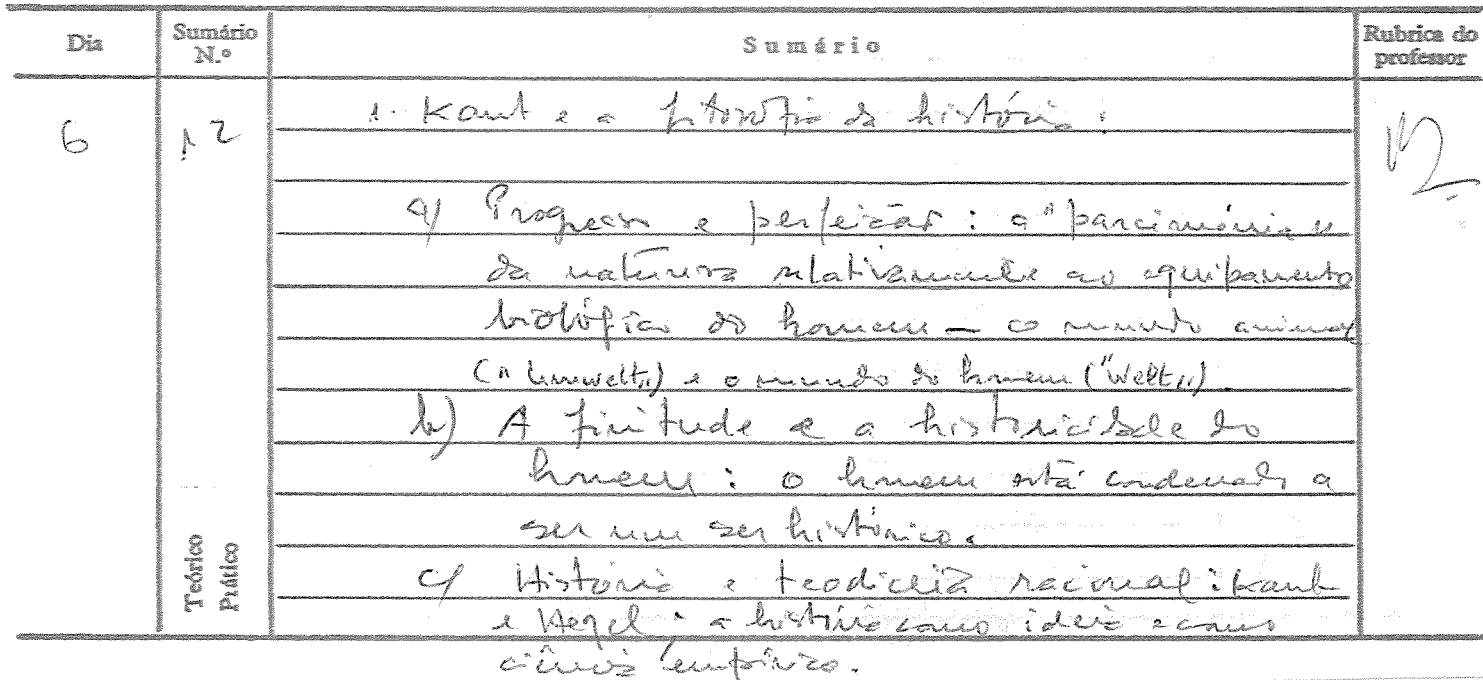 Dia
Sumário N.º
Sumário
Rubrica do professor
6
12
1. Kant e a filosofia da história:
a) Progresso e perfeição: a "parcimónia"
da natureza relativamente ao equipamento
biológico do homem – o mundo animal
("Umwelt") e o mundo do homem ("Welt").
b) A finitude e a historicidade do
homem: o homem está condenado a
ser um ser histórico.
Teórico
Prático
c) História e teodiceia racional: Kant
e Hegel; a história como ideia e como
ciência empírica.